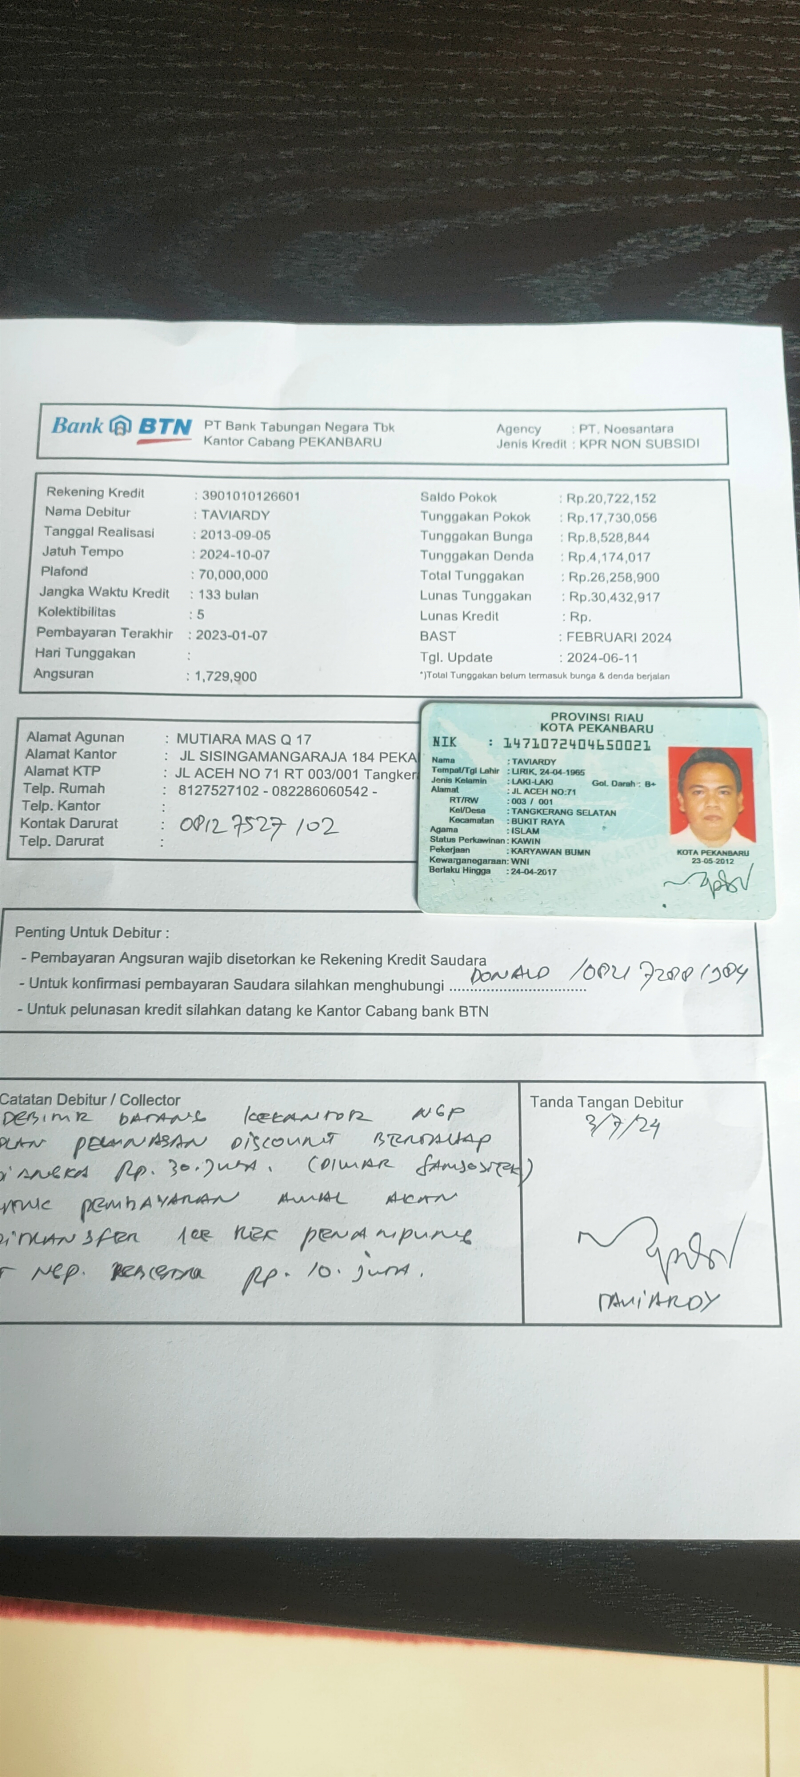 Bank BTN PT Bank Tabungan Negara Tbk
Kantor Cabang PEKANBARU
Agency : PT. Noesantara
Jenis Kredit : KPR NON SUBSIDI
Rekening Kredit : 3901010126601
Nama Debitur : TAVIARDY
Tanggal Realisasi : 2013-09-05
Jatuh Tempo : 2024-10-07
Plafond : 70,000,000
Jangka Waktu Kredit : 133 bulan
Kolektibilitas : 5
Pembayaran Terakhir : 2023-01-07
Hari Tunggakan :
Angsuran : 1,729,900
Saldo Pokok : Rp.20,722,152
Tunggakan Pokok : Rp.17,730,056
Tunggakan Bunga : Rp.8,528,844
Tunggakan Denda : Rp.4,174,017
Total Tunggakan : Rp.26,258,900
Lunas Tunggakan : Rp.30,432,917
Lunas Kredit : Rp.
BAST : FEBRUARI 2024
Tgl. Update : 2024-06-11
*)Total Tunggakan belum termasuk bunga & denda berjalan
Alamat Agunan : MUTIARA MAS Q 17
Alamat Kantor : JL SISINGAMANGARAJA 184 PEKA
Alamat KTP : JL ACEH NO 71 RT 003/001 Tangker
Telp. Rumah : 8127527102 - 082286060542 -
Telp. Kantor :
Kontak Darurat : 08127527102
Telp. Darurat :
PROVINSI RIAU
KOTA PEKANBARU
NIK : 1471072404650021
Nama : TAVIARDY
Tempat/Tgl Lahir : LIRIK, 24-04-1965
Jenis Kelamin : LAKI-LAKI Gol. Darah : B+
Alamat : JL ACEH NO:71
RT/RW : 003 / 001
Kel/Desa : TANGKERANG SELATAN
Kecamatan : BUKIT RAYA
Agama : ISLAM
Status Perkawinan : KAWIN
Pekerjaan : KARYAWAN BUMN
Kewarganegaraan : WNI
Berlaku Hingga : 24-04-2017
KOTA PEKANBARU
23-05-2012
Penting Untuk Debitur :
- Pembayaran Angsuran wajib disetorkan ke Rekening Kredit Saudara
- Untuk konfirmasi pembayaran Saudara silahkan menghubungi DONALD
- Untuk pelunasan kredit silahkan datang ke Kantor Cabang bank BTN
Catatan Debitur / Collector
DEBITUR DATANG KEKANTOR NGP
PELUNASAN DISCOUNT BERTAHAP
DIANGKA Rp. 30. juta. (DILUAR
PEMBAYARAN AWAL AKAN
DITRANSFER KE REK PENAMPUNG
NGP. Rp. 10. juta.
Tanda Tangan Debitur
3/7/24
TAVIARDY